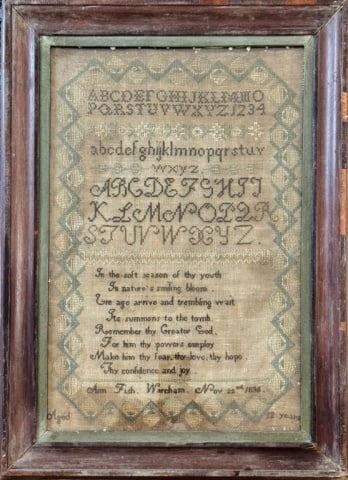 ABCDEFGHIJKLMNO
PQRSTUVWXYZ.1234
abcdefghijklmnopqrstuv
wxyz.
ABCDEFGHIJ
KLMNOPQR
STUVWXYZ.
In the soft season of thy youth
In nature's smiling bloom
Ere age arrive and trembling wait
Its summons to the tomb
Remember thy Creator God.
For him thy powers employ
Make him thy fear, thy love, thy hope
Thy confidence and joy
Ann Fish. Wareham. Nov 22nd
Aged 12 years